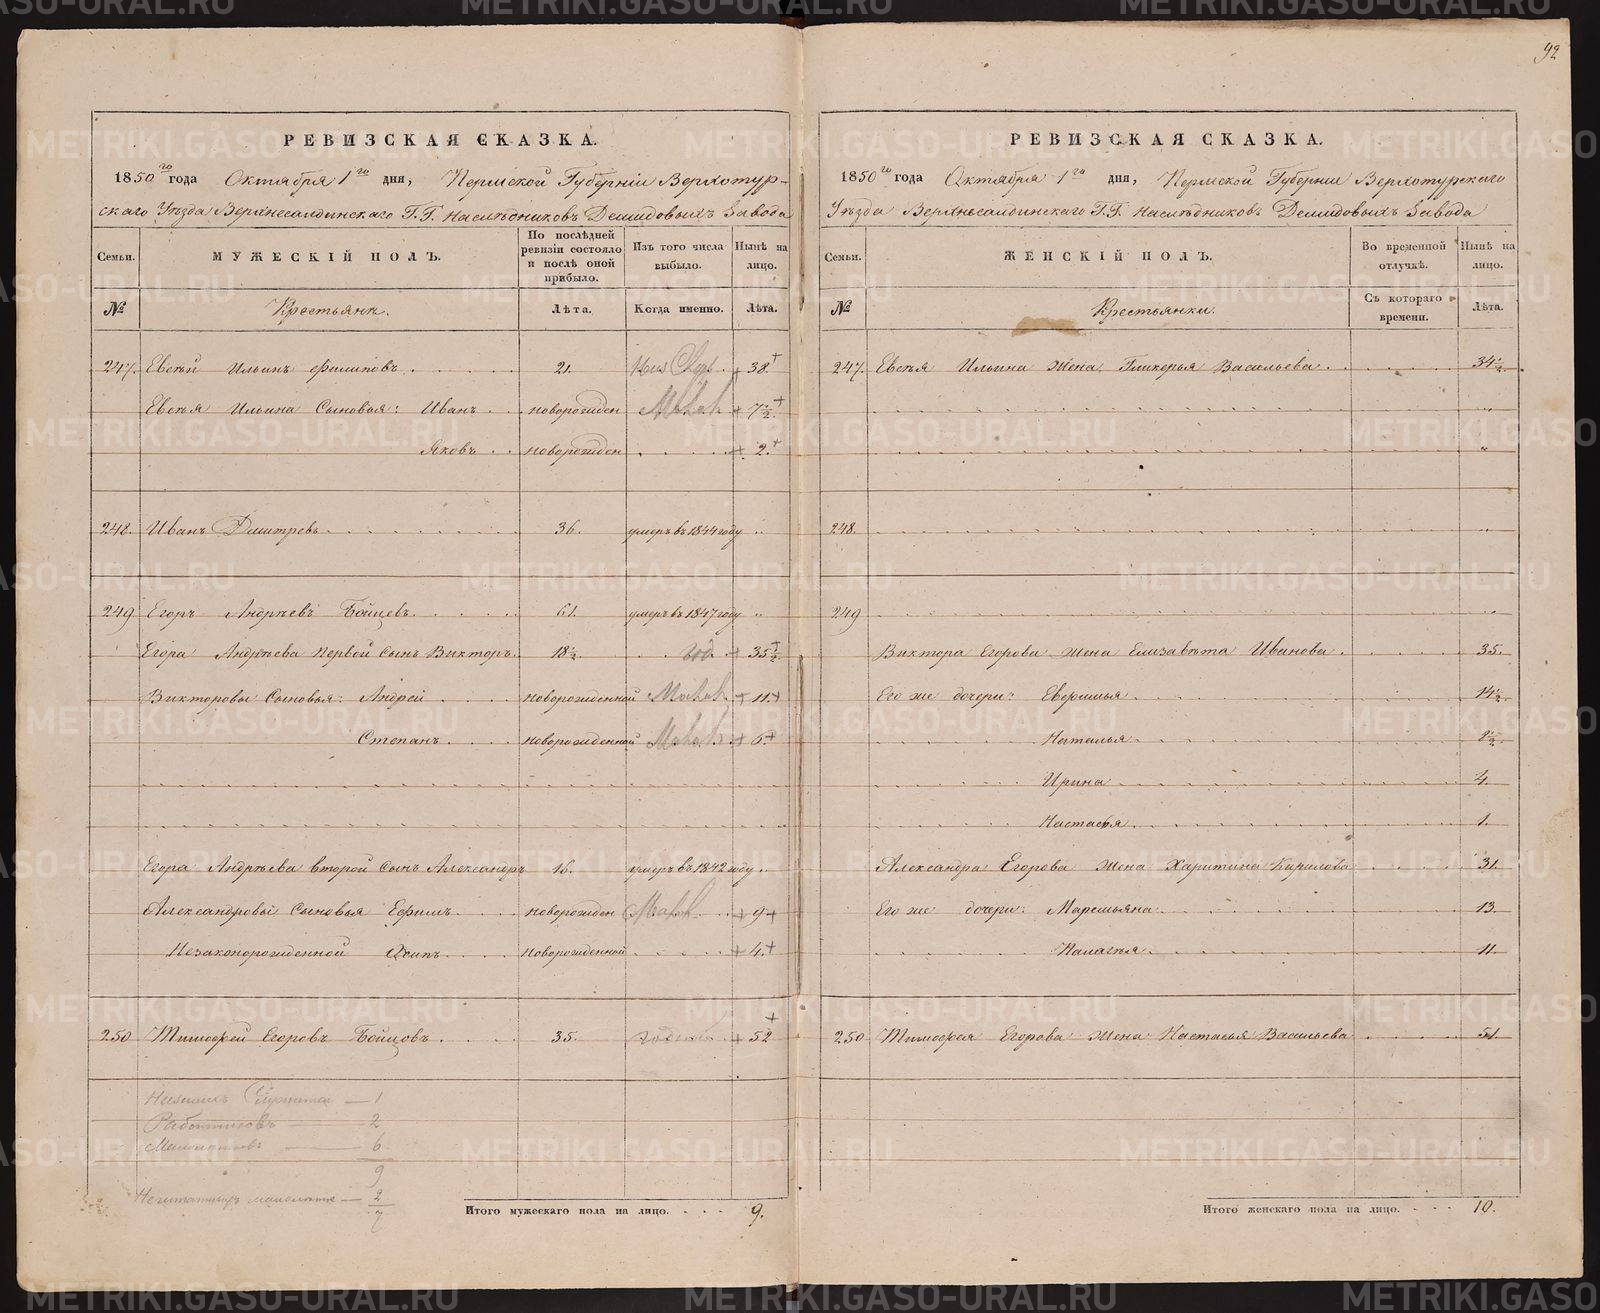 92
РЕВИЗСКАЯ СКАЗКА.
1850го года Октября 1го дня, Пермской Губерніи Верхотур-
скаго Уѣзда Верхнесалдинскаго Г.Г. Наслѣдниковъ Демидовыхъ Завода
Семьи. МУЖЕСКІЙ ПОЛЪ. По послѣдней ревизіи состояло и послѣ оной прибыло. Изъ того числа выбыло. Нынѣ на лицо.
№ Крестьяне. Лѣта. Когда именно. Лѣта.
247. Евсѣй Ильинъ Филиповъ 21. 38.
Евсѣя Ильина Сыновья: Иванъ новорожден 7½.
Яковъ новорожден 2.
248. Иванъ Дмитревъ 36. умеръ въ 1844 году „
249 Егоръ Андрѣевъ Бойцевъ 61. умеръ въ 1847 году „
Егора Андрѣева первой сынъ Викторъ 18½ год 35½
Викторовы Сыновья: Андрей новорожденной 11
Степанъ новорожденной 6
Егора Андрѣева второй сынъ Александръ 16. умеръ въ 1842 году „
Александровы Сыновья Ефимъ новорожден 9
Незаконорожденной новорожденной 4.
250 Тимофей Егоровъ Бойцовъ 35. 52
Низшихъ Служител — 1
Работников — 2
6
9
2
7
Итого мужескаго пола на лицо. 9.
РЕВИЗСКАЯ СКАЗКА.
1850го года Октября 1го дня, Пермской Губерніи Верхотурскаго
Уѣзда Верхнесалдинскаго Г.Г. Наслѣдниковъ Демидовыхъ Завода
Семьи. ЖЕНСКІЙ ПОЛЪ. Во временной отлучкѣ. Нынѣ на лицо.
№ Крестьянки. Съ котораго времени. Лѣта.
247. Евсѣя Ильина Жена Гликерья Васильева 34½.
„
„
248. „
249 „
Виктора Егорова Жена Елизавѣта Иванова 35.
Его же дочери: 14½.
Наталья 8½.
Ирина 4.
Настасья 1.
Александра Егорова Жена Харитина Кирилова 31.
Его же дочери: Маремьяна 13.
Палагѣя 11.
250 Тимофея Егорова Жена Настасья Васильева 51.
Итого женскаго пола на лицо. 10.
METRIKI.GASO-URAL.RU